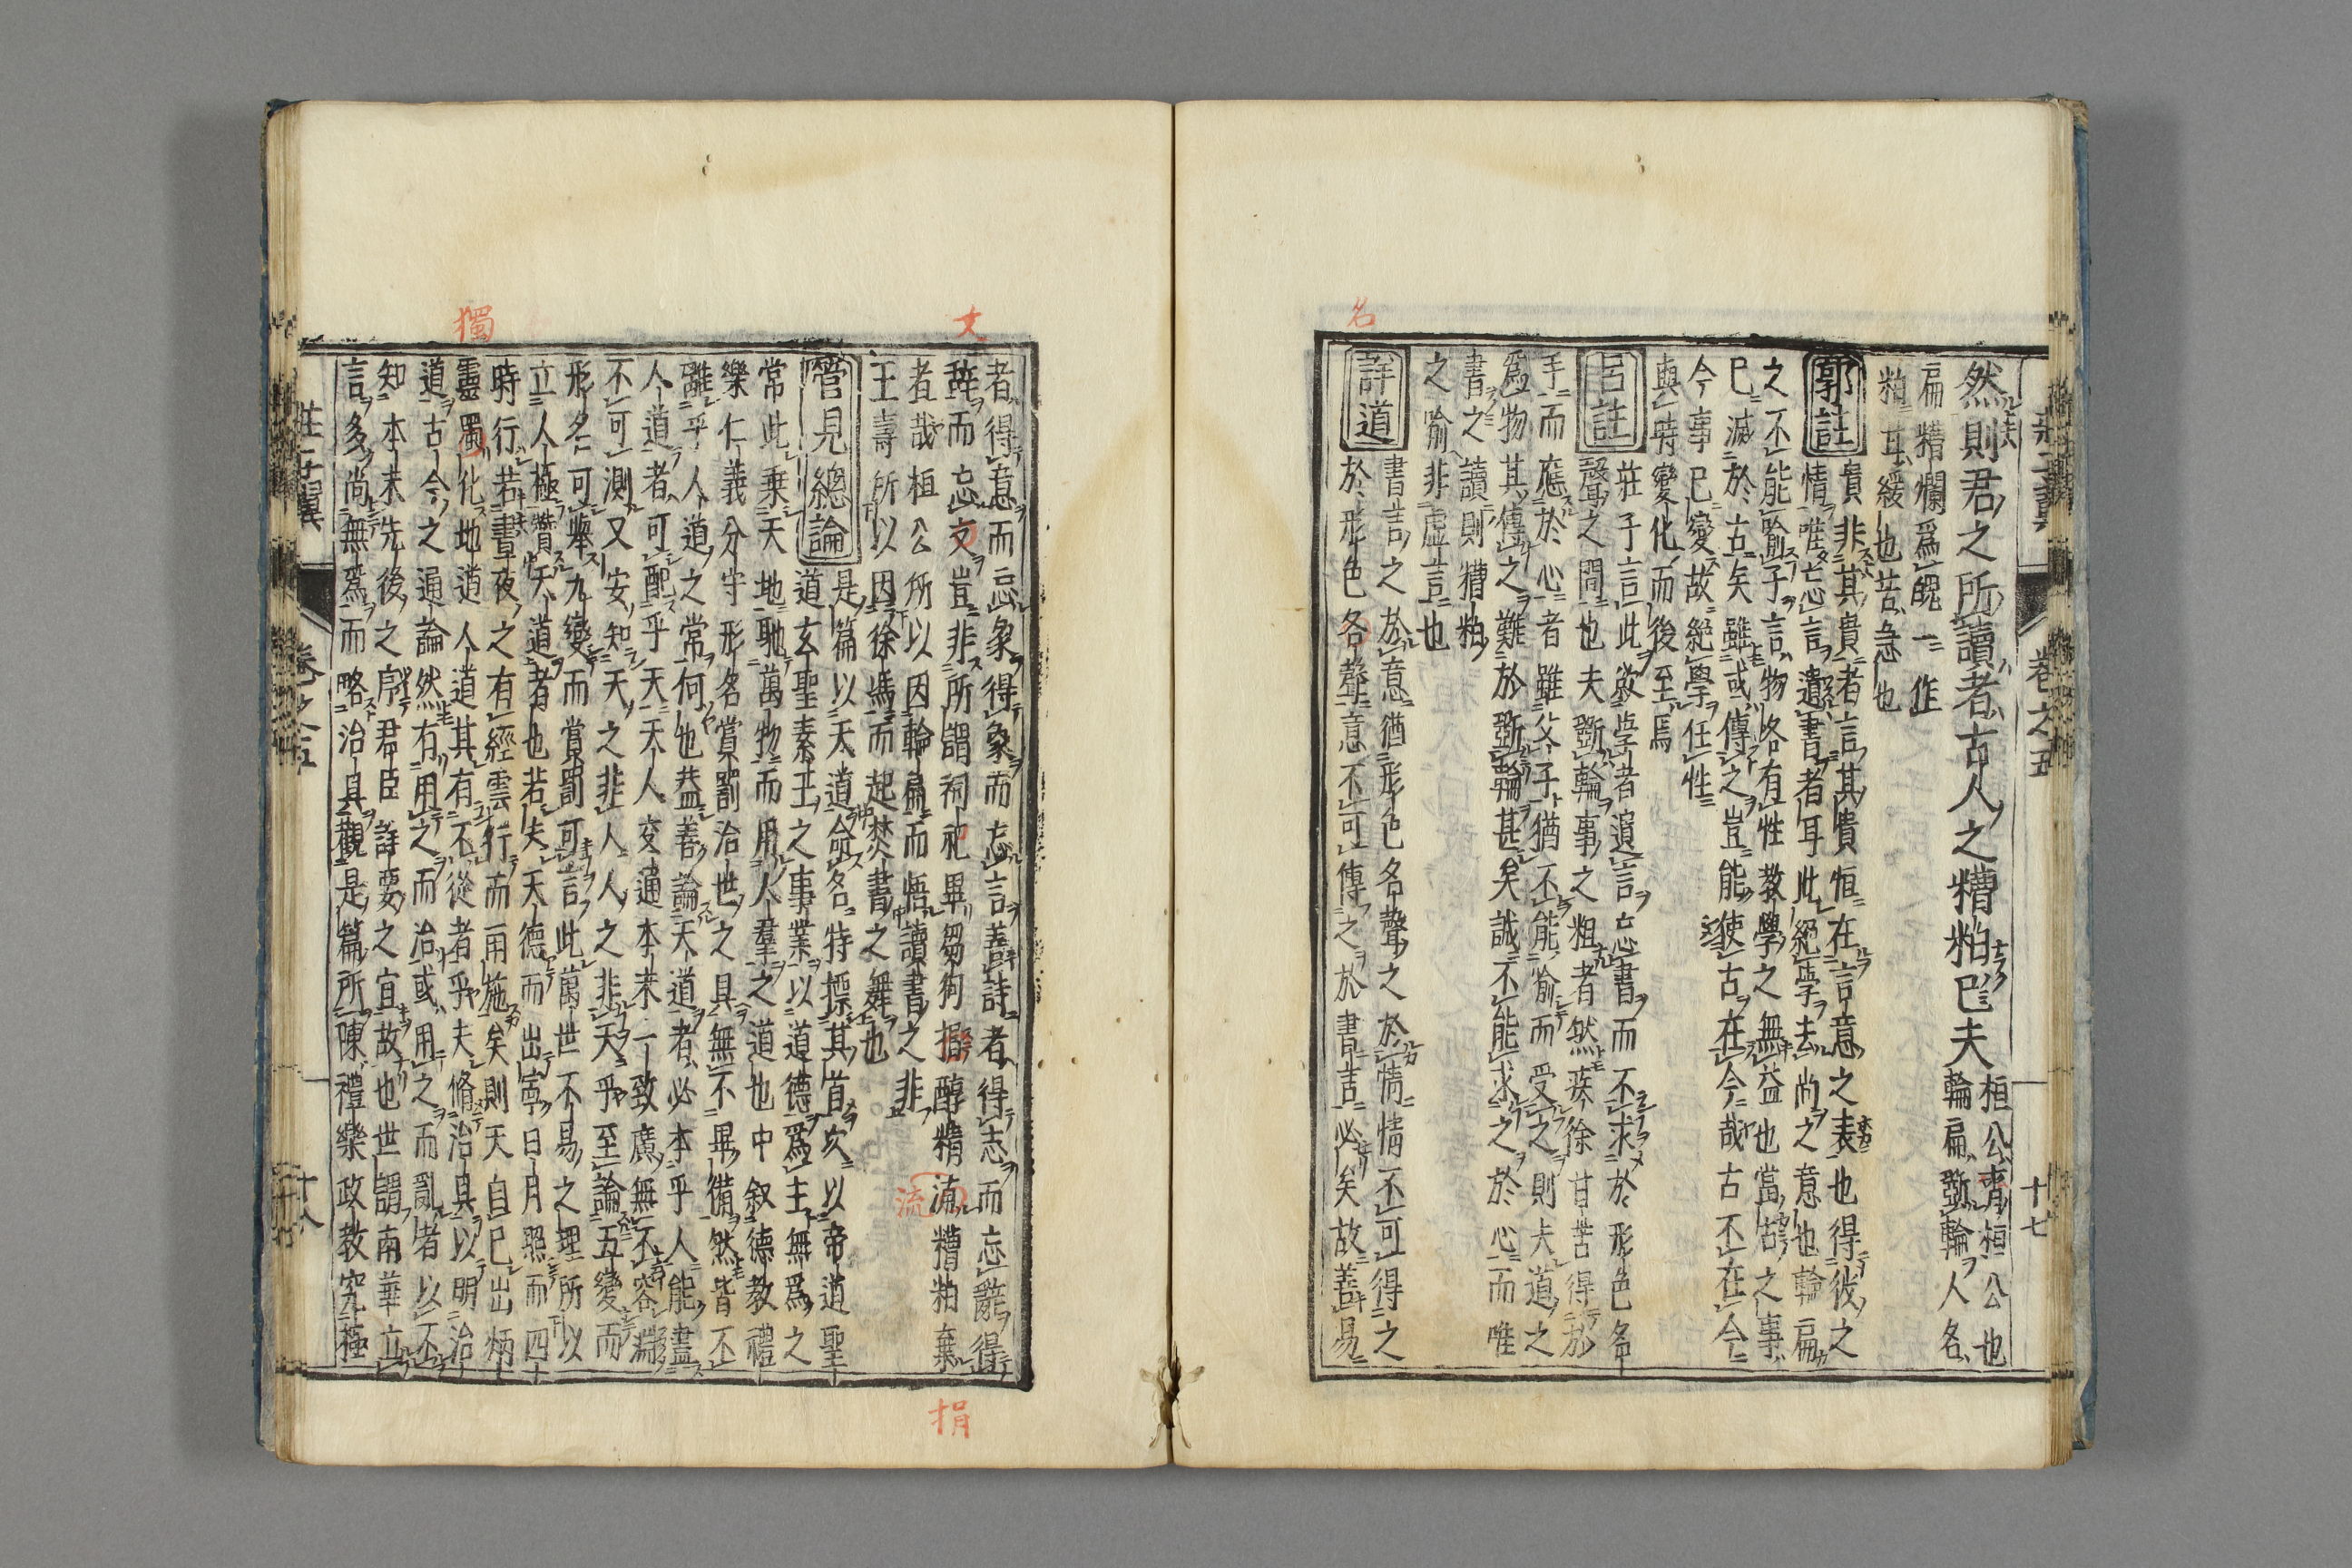 卷之五
十七
然則君之所讀者古人之糟粕已夫
桓公齊桓公也
輪扁斲輪人名
扁糟爛爲魄一作
粕甘緩也苦急也
郭註
貴非其貴者言其貴恒在言意之表也得彼之
情唯忘言遺書者耳此絕學去尚之意也輪扁
之不能喻子言物各有性教學之無益也當古之事
已滅於古矣雖或傳之豈能使古在今哉古不在今
今事已變故絕學任性
與時變化而後至焉
呂註
莊子言此欲學者遺言忘書而不求於形色名
聲之間也夫斲輪事之粗者然疾徐甘苦得於
手而應於心者雖父子猶不能喻而受之則夫道之
爲物其傳之難於斲輪甚矣誠不能求之於心而唯
書之讀則糟粕
之喻非虛言也
詳道
書言之於意猶形色名聲之於情情不可得之
於形色名聲意不可傳之於書言必矣故善易
名
者得意而忘象得象而忘言善詩者得志而忘辭得
辭而忘文豈非所謂祠祀畢芻狗捐醇精流糟粕棄
者哉桓公所以因輪扁而悟讀書之非
王壽所以因徐馮而起焚書之舞也
管見總論
是篇以天道命名特摽其首次以帝道聖
道玄聖素王之事業以道德爲主無爲之
常此乘天地馳萬物而用人羣之道也中叙德教禮
樂仁義分守形名賞罰治世之具無不畢備然皆不
離乎人道之常何也葢善論天道者必本乎人能盡
人道者可配乎天天人交通本末一致廣無不容淵
不可測又安知天之非人人之非天乎至論五變而
形名可舉九變而賞罰可言此萬世不易之理所以
立人極贊天道者也若夫天德而出寧日月照而四
時行若晝夜之有經雲行而雨施矣則天自已出炳
靈獨化地道人道其有不從者乎夫脩治具以明治
道古今之通論然有用之而治或用之而亂者以不
知本末先後之序君臣詳要之宜故也世謂南華立
言多尚無爲而略治具觀是篇所陳禮樂政教究極
莊子翼
卷之五
十八
文
獨
流
捐